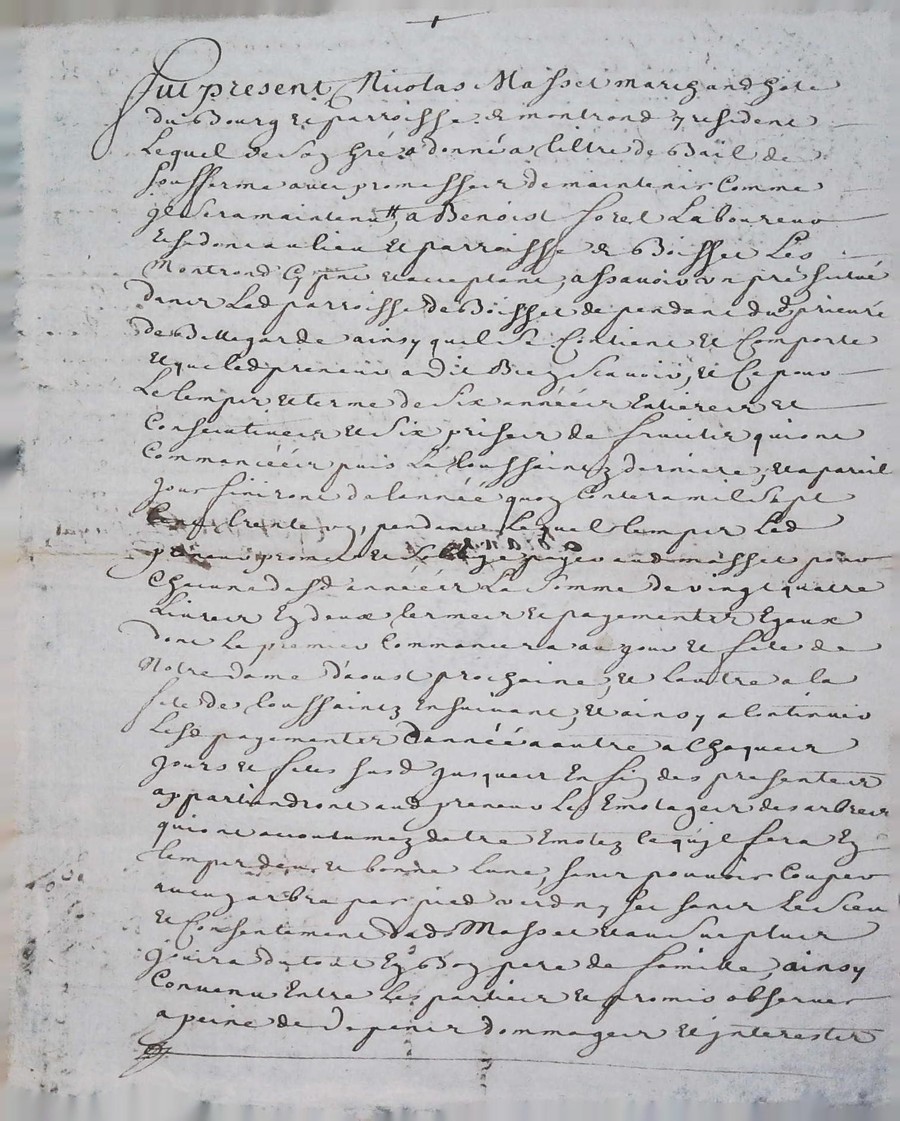 Fut present Nicolas Masset marchand hote
du Bourg et parroisse de montrond y resident
Lequel de son gré a donné a tiltre de Bail de
sousferme avec promesseir de maintenir Comme
Jl sera maintenu, a Benoist forel Laboureur
au lieu et parroisse de Boisset Les
Montrond cy pnt et acceptant, assavoir un pré situé
danz Lad parroisse de Boisset dependant du prieuré
de Bellegarde ainsy quil se Contient et Comporte
et que led preneur a dit Bien scavoir, et Ce pour
Le tempz et terme de Six annéeir Entiereir et
Consecutiveir et Six priseir de fruitz qui ont
Commancéeir puis La toussaintz derniere, et a pareil
Jour finiront de lannée quon Contera mil Sept
Cent trente un, pendant Lequel tempz Led
preneur promet et payer aud masset pour
Chacune desd annéeir La Somme de vingt quatre
Livreir En deux termeir et payementz Egaux
dont Le premier Commancera au jour et fete de
Notre dame d'aoust prochaine, et Lautre a la
fete de toussaintz Ensuivant, et ainsy a Continuer
Lesd payementz d'année a autre a Chaqueir
Jours et fetes susd Jusqueir En fin des presenteir
appartiendront aud preneur Les Emotageir des arbreir
qui ont accoutumez detre Emotez ce qu'jl fera En
tempz deu et bonne Lune, sanz pouvoir Couper
aucun arbre par pied verd ny sec sanz Le sceu
et Consentement dud Masset et au surpluir
Jouira du tout En Bon pere de famille, ainsy
Convenu Entre Les partieir et promis observer
a peine de depenz dommageir et jnterestz